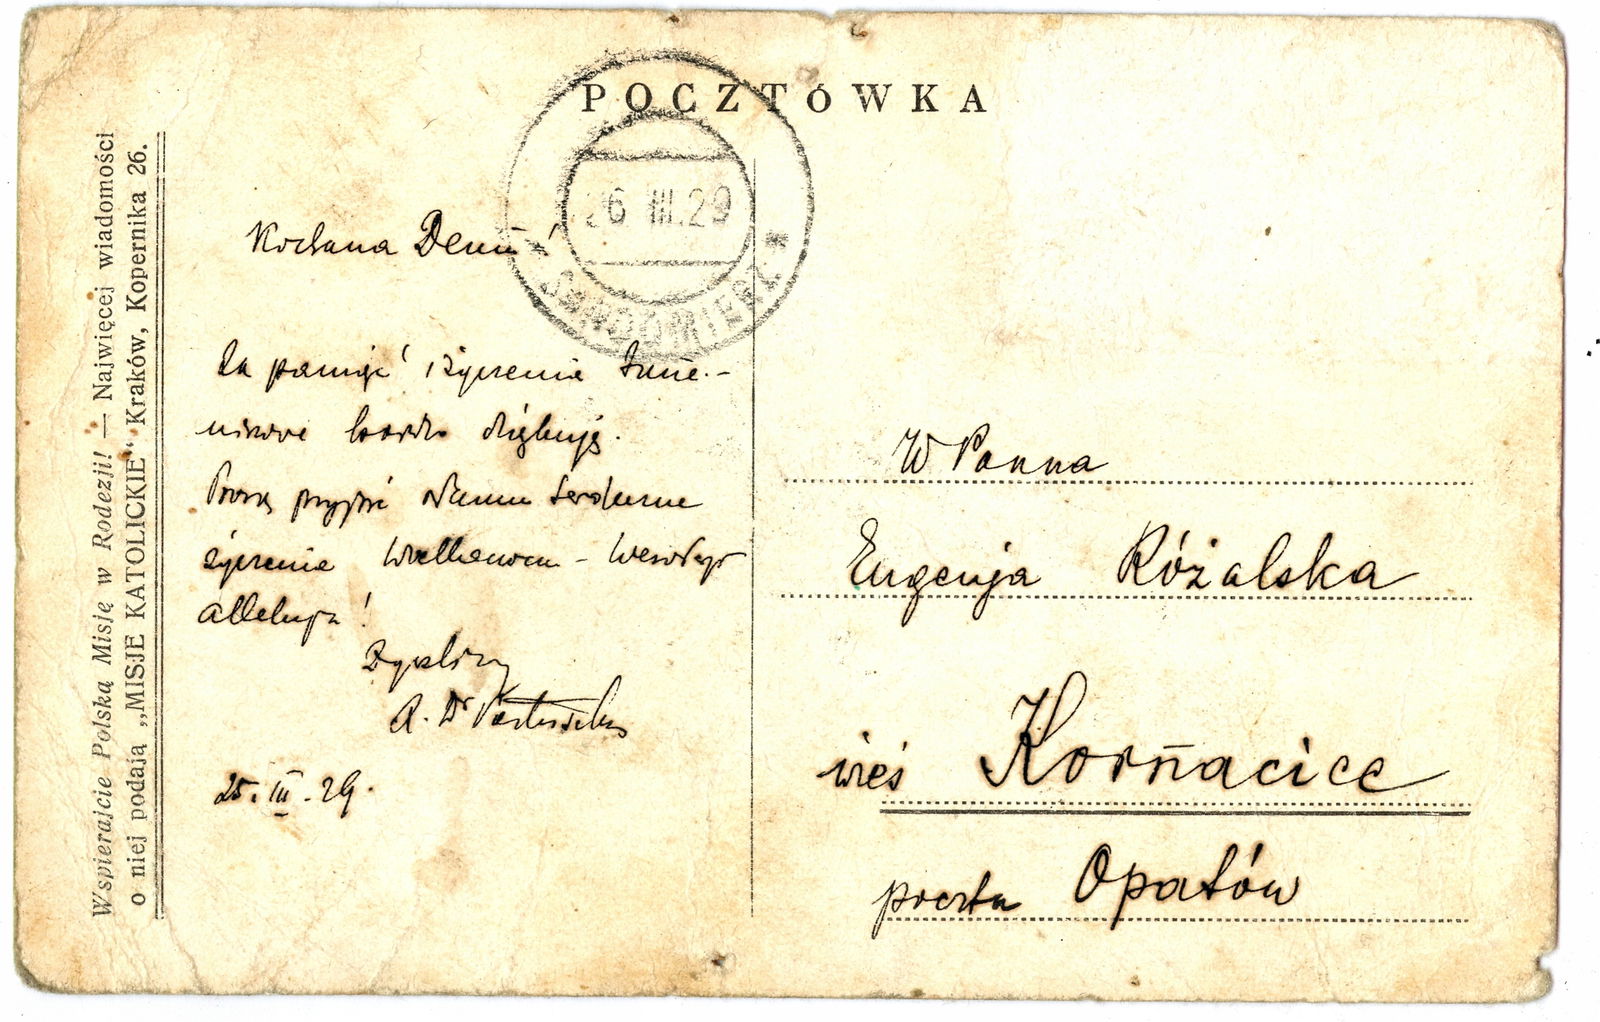 POCZTÓWKA
Wspierajcie Polską Misję w Rodezji! — Najwięcej wiadomości
o niej podają „MISJE KATOLICKIE“ Kraków, Kopernika 26.
26 III.29
* SANDOMIERZ *
Kochana
Za pamięć i życzenia Imie-
ninowe bardzo dziękuję.
Proszę przyjąć serdeczne
życzenia Wielkanocne - Wesołego
alleluja!
Życzliwy
25.III.29.
WPanna
Eugenja Różalska
wieś Kornacice
poczta Opatów